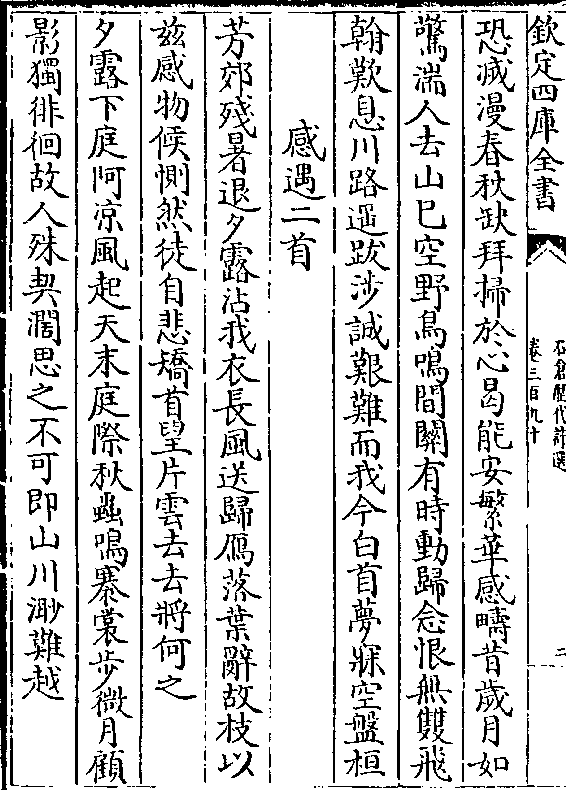 欽定四庫全書
石倉歷代詩選
卷三百九十
二
恐滅漫春秋缺拜掃於心曷能安繁華感疇昔歲月如
驚湍人去山已空野鳥鳴間關有時動歸念恨無雙飛
翰歎息川路遥跋涉誠艱難而我今白首夢寐空盤桓
感遇二首
芳郊殘暑退夕露沾我衣長風送歸鴈落葉辭故枝以
兹感物候惻然徒自悲矯首望片雲去去將何之
夕露下庭阿凉風起天末庭際秋蟲鳴褰裳步微月顧
影獨徘徊故人殊契濶思之不可即山川渺難越